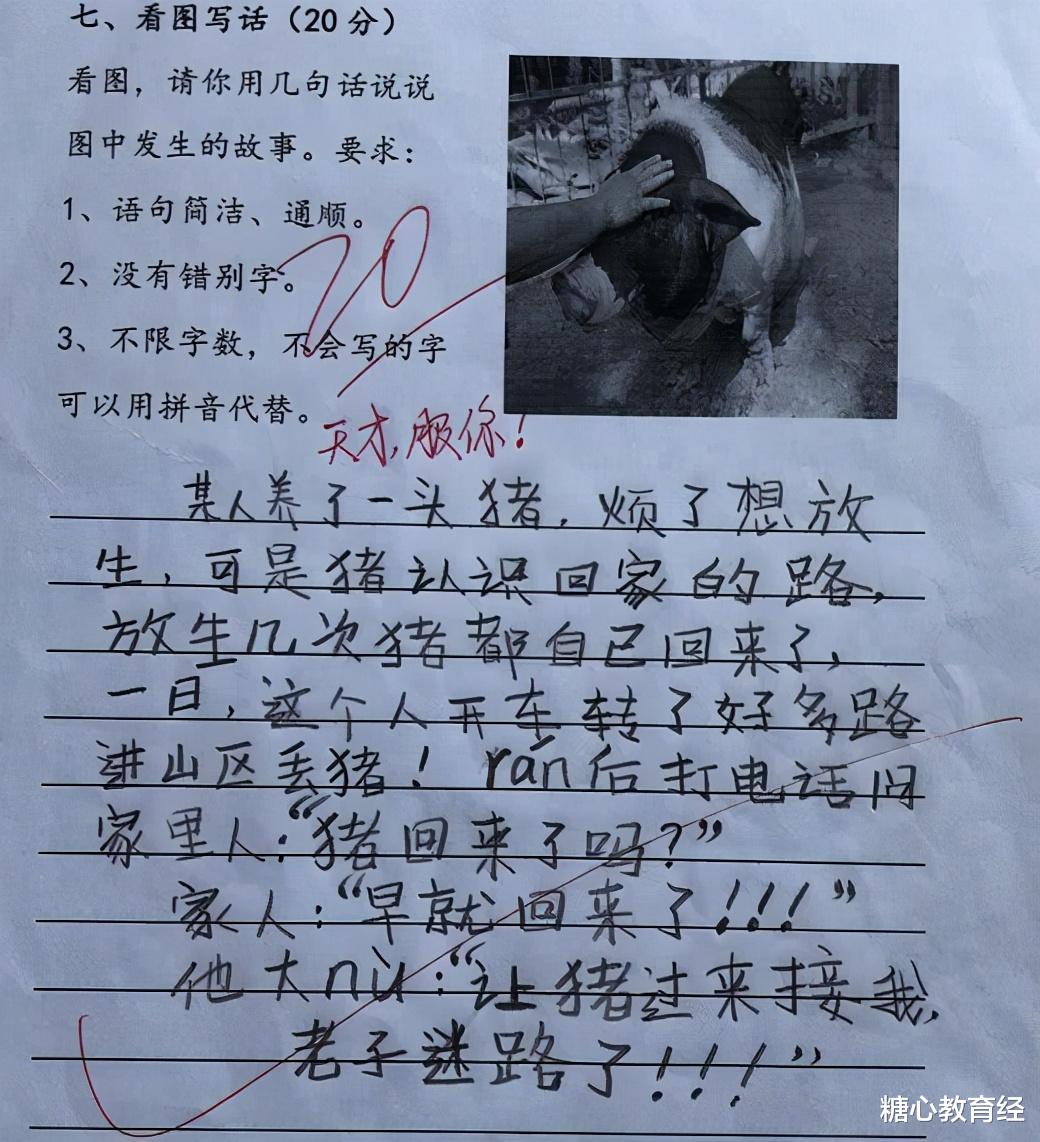 七、看图写话（20分）
看图，请你用几句话说说
图中发生的故事。要求：
1、语句简洁、通顺。
2、没有错别字。
3、不限字数，不会写的字
可以用拼音代替。
20
天才，服你！
某人养了一头猪，烦了想放
生，可是猪认识回家的路，
放生几次猪都自己回来了，
一日，这个人开车转了好多路
进山区丢猪！rán后打电话问
家里人：“猪回来了吗？”
家人：“早就回来了！！！”
他大nù：“让猪过来接我，
老子迷路了！！！”
糖心教育经